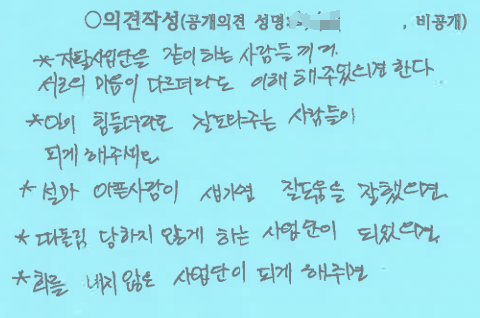 ○의견작성(공개의견 성명: , 비공개)
*자활사업단을 같이 하는 사람들끼게
서로의 마음이 다르더라도 이해 해주었으면 한다
*일이 힘들더라도 잘도와주는 사람들이
되게 해주세요
*설마 아픈사람이 생기면 잘도움을 잘했으면
*따돌림 당하지 않게 하는 사업단이 되었으면
*화를 내지않은 사업단이 되게 해주면